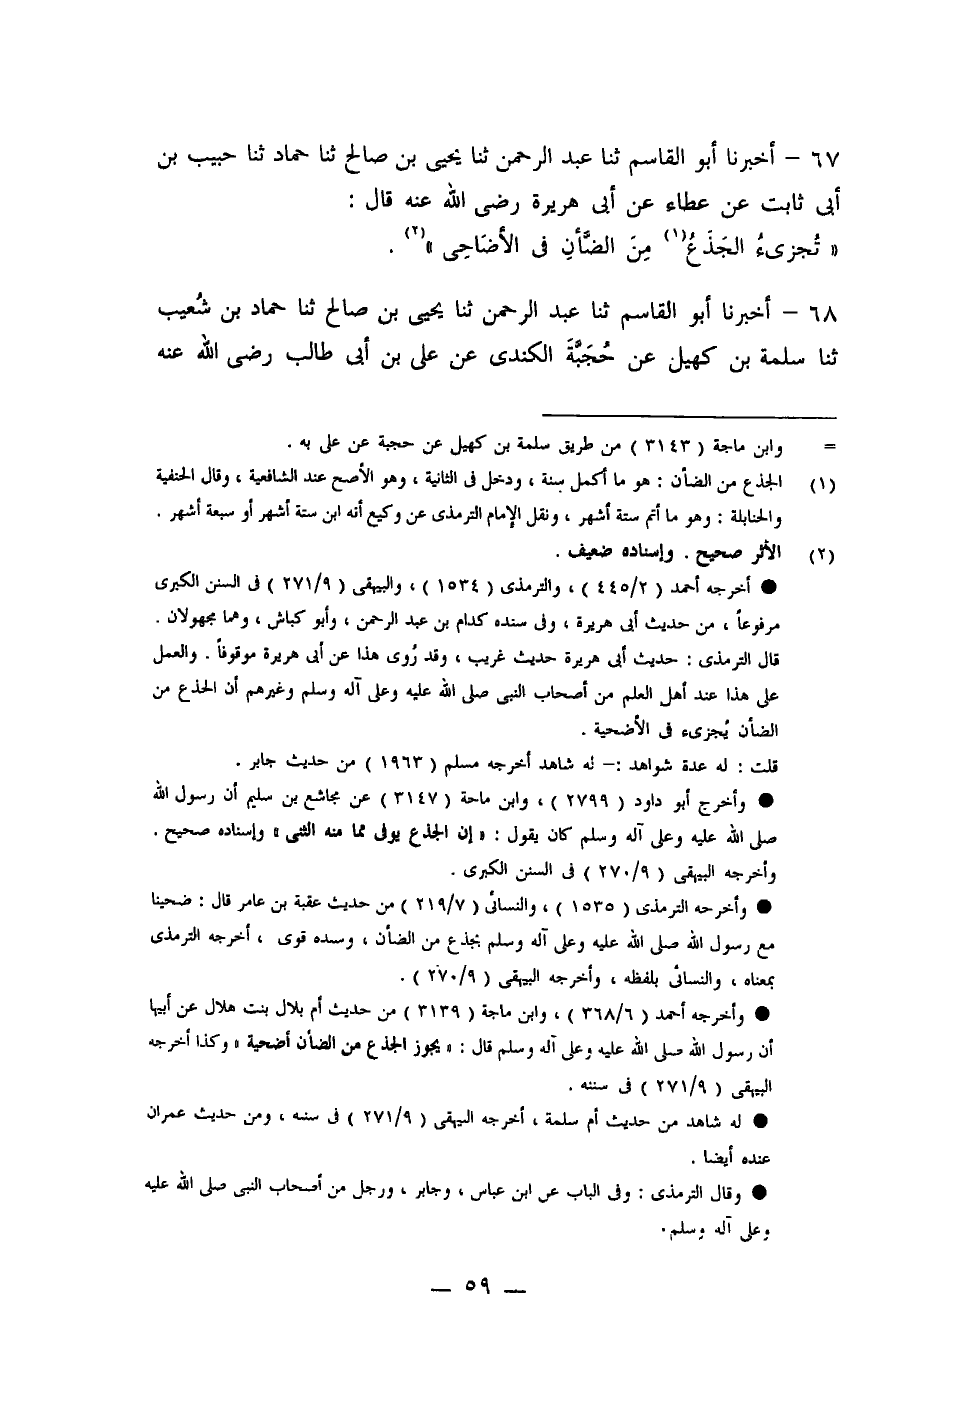 ٦٧ – أخبرنا أبو القاسم ثنا عبد الرحمن ثنا يحيى بن صالح ثنا حماد ثنا حبيب بن
أبى ثابت عن عطاء عن أبى هريرة رضى الله عنه قال :
« تُجزىءُ الجَذَعُ(١) مِنَ الضَّأنِ فى الأضَاحِى »(٢) .
٦٨ – أخبرنا أبو القاسم ثنا عبد الرحمن ثنا يحيى بن صالح ثنا حماد بن شُعيب
ثنا سلمة بن كهيل عن حُجَبَّةَ الكندى عن على بن أبى طالب رضى الله عنه
= وابن ماجة ( ٣١٤٣ ) من طريق سلمة بن كهيل عن حجبة عن على به .
(١) الجذع من الضأن : هو ما أكمل سنة ، ودخل فى الثانية ، وهو الأصح عند الشافعية ، وقال الحنفية
والحنابلة : وهو ما أتم ستة أشهر ، ونقل الإمام الترمذى عن وكيع أنه ابن ستة أشهر أو سبعة أشهر .
(٢) الأثر صحيح . وإسناده ضعيف .
● أخرجه أحمد ( ٤٤٥/٢ ) ، والترمذى ( ١٥٣٤ ) ، والبيهقى ( ٢٧١/٩ ) فى السنن الكبرى
مرفوعاً ، من حديث أبى هريرة ، وفى سنده كدام بن عبد الرحمن ، وأبو كباش ، وهما مجهولان .
قال الترمذى : حديث أبى هريرة حديث غريب ، وقد رُوى هذا عن أبى هريرة موقوفاً . والعمل
على هذا عند أهل العلم من أصحاب النبى صلى الله عليه وعلى آله وسلم وغيرهم أن الجذع من
الضأن يُجزىء فى الأضحية .
قلت : له عدة شواهد :– له شاهد أخرجه مسلم ( ١٩٦٣ ) من حديث جابر .
● وأخرج أبو داود ( ٢٧٩٩ ) ، وابن ماجة ( ٣١٤٧ ) عن مجاشع بن سليم أن رسول الله
صلى الله عليه وعلى آله وسلم كان يقول : « إن الجذع يوفى مما منه الثنى » وإسناده صحيح .
وأخرجه البيهقى ( ٢٧٠/٩ ) فى السنن الكبرى .
● وأخرجه الترمذى ( ١٥٣٥ ) ، والنسائى ( ٢١٩/٧ ) من حديث عقبة بن عامر قال : ضحينا
مع رسول الله صلى الله عليه وعلى آله وسلم بجذع من الضأن ، وسنده قوى ، أخرجه الترمذى
بمعناه ، والنسائى بلفظه ، وأخرجه البيهقى ( ٢٧٠/٩ ) .
● وأخرجه أحمد ( ٣٦٨/٦ ) ، وابن ماجة ( ٣١٣٩ ) من حديث أم بلال بنت هلال عن أبيها
أن رسول الله صلى الله عليه وعلى آله وسلم قال : « يجوز الجذع من الضأن أضحية » وكذا أخرجه
البيهقى ( ٢٧١/٩ ) فى سننه .
● له شاهد من حديث أم سلمة ، أخرجه البيهقى ( ٢٧١/٩ ) فى سننه ، ومن حديث عمران
عنده أيضا .
● وقال الترمذى : وفى الباب عن ابن عباس ، وجابر ، ورجل من أصحاب النبى صلى الله عليه
وعلى آله وسلم.
— ٥٩ —